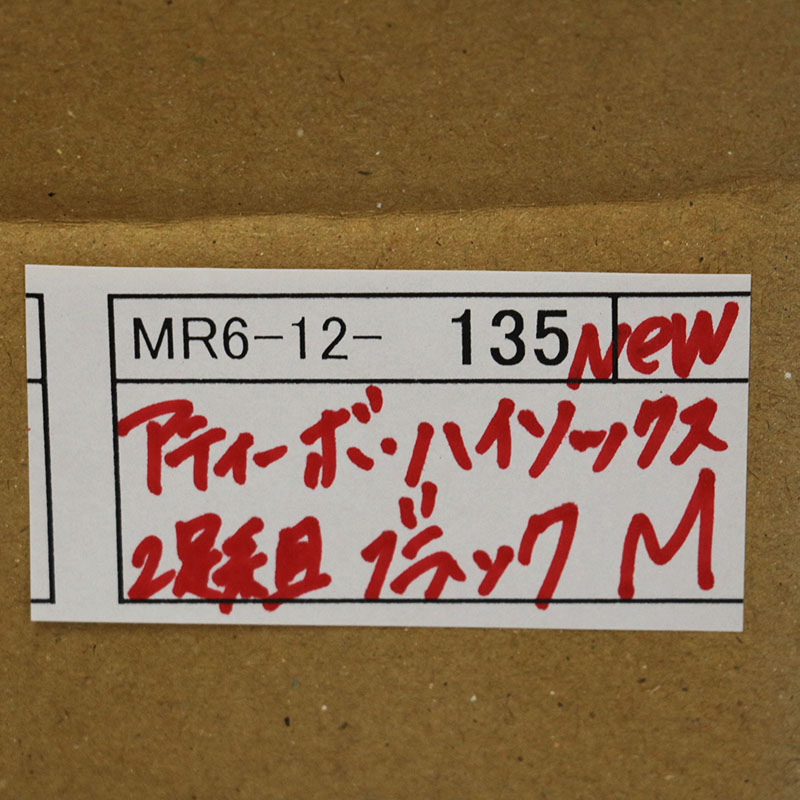 MR6-12- 135 New
アティーボ・ハイソックス
2足組 ブラック M